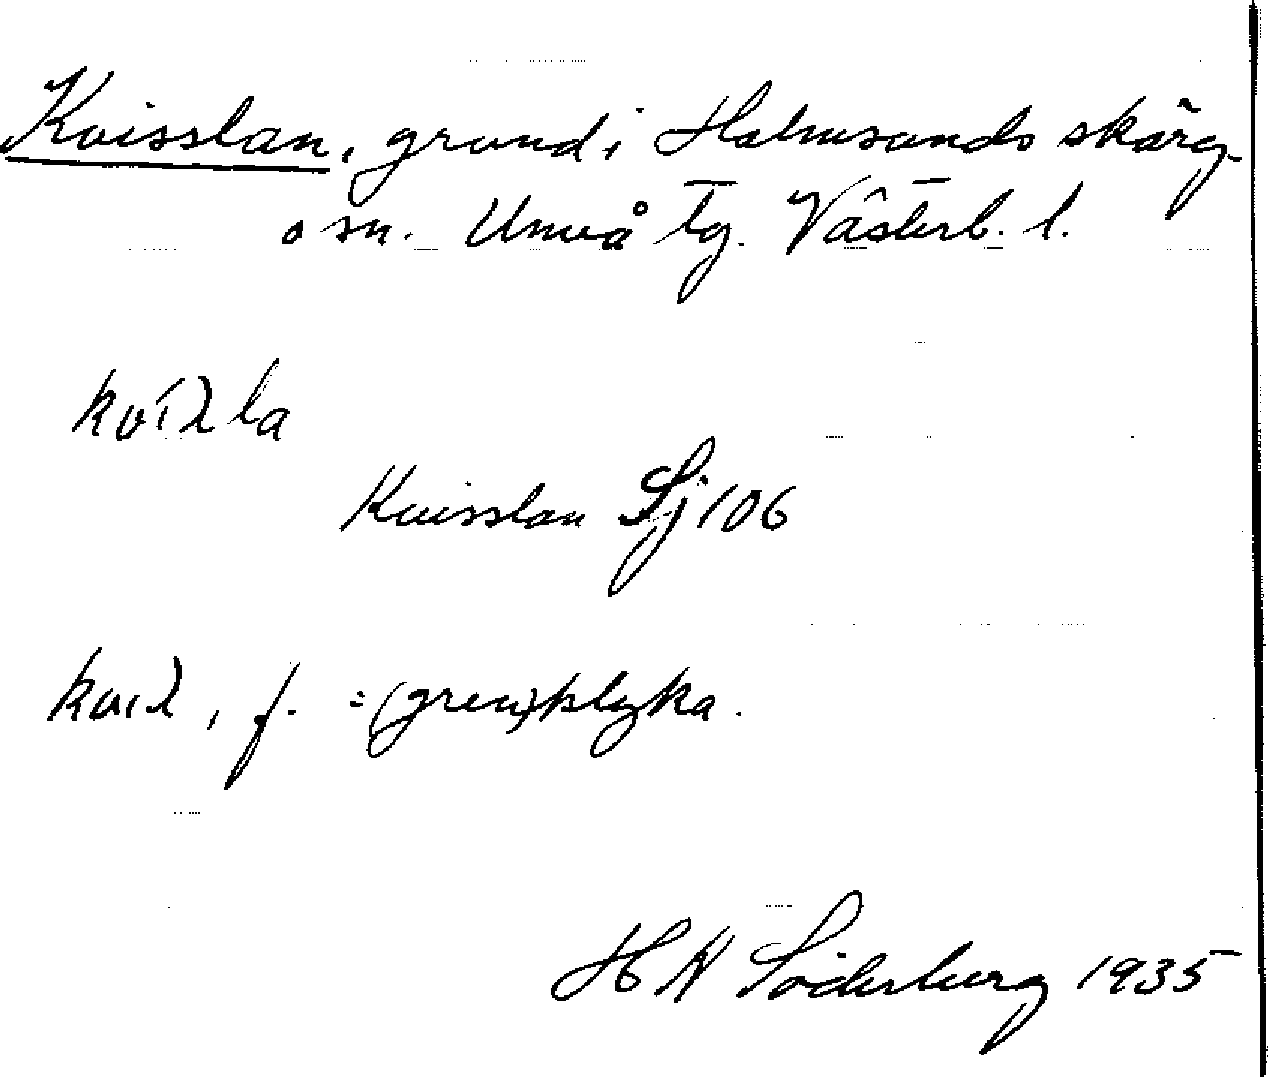 Kvisslan, grund i Holmsunds skärg.
o sn. Umeå tg. Västerb. l.
Kvisslan Sj 106
f. = (gren)klyka.
H N Söderberg 1935